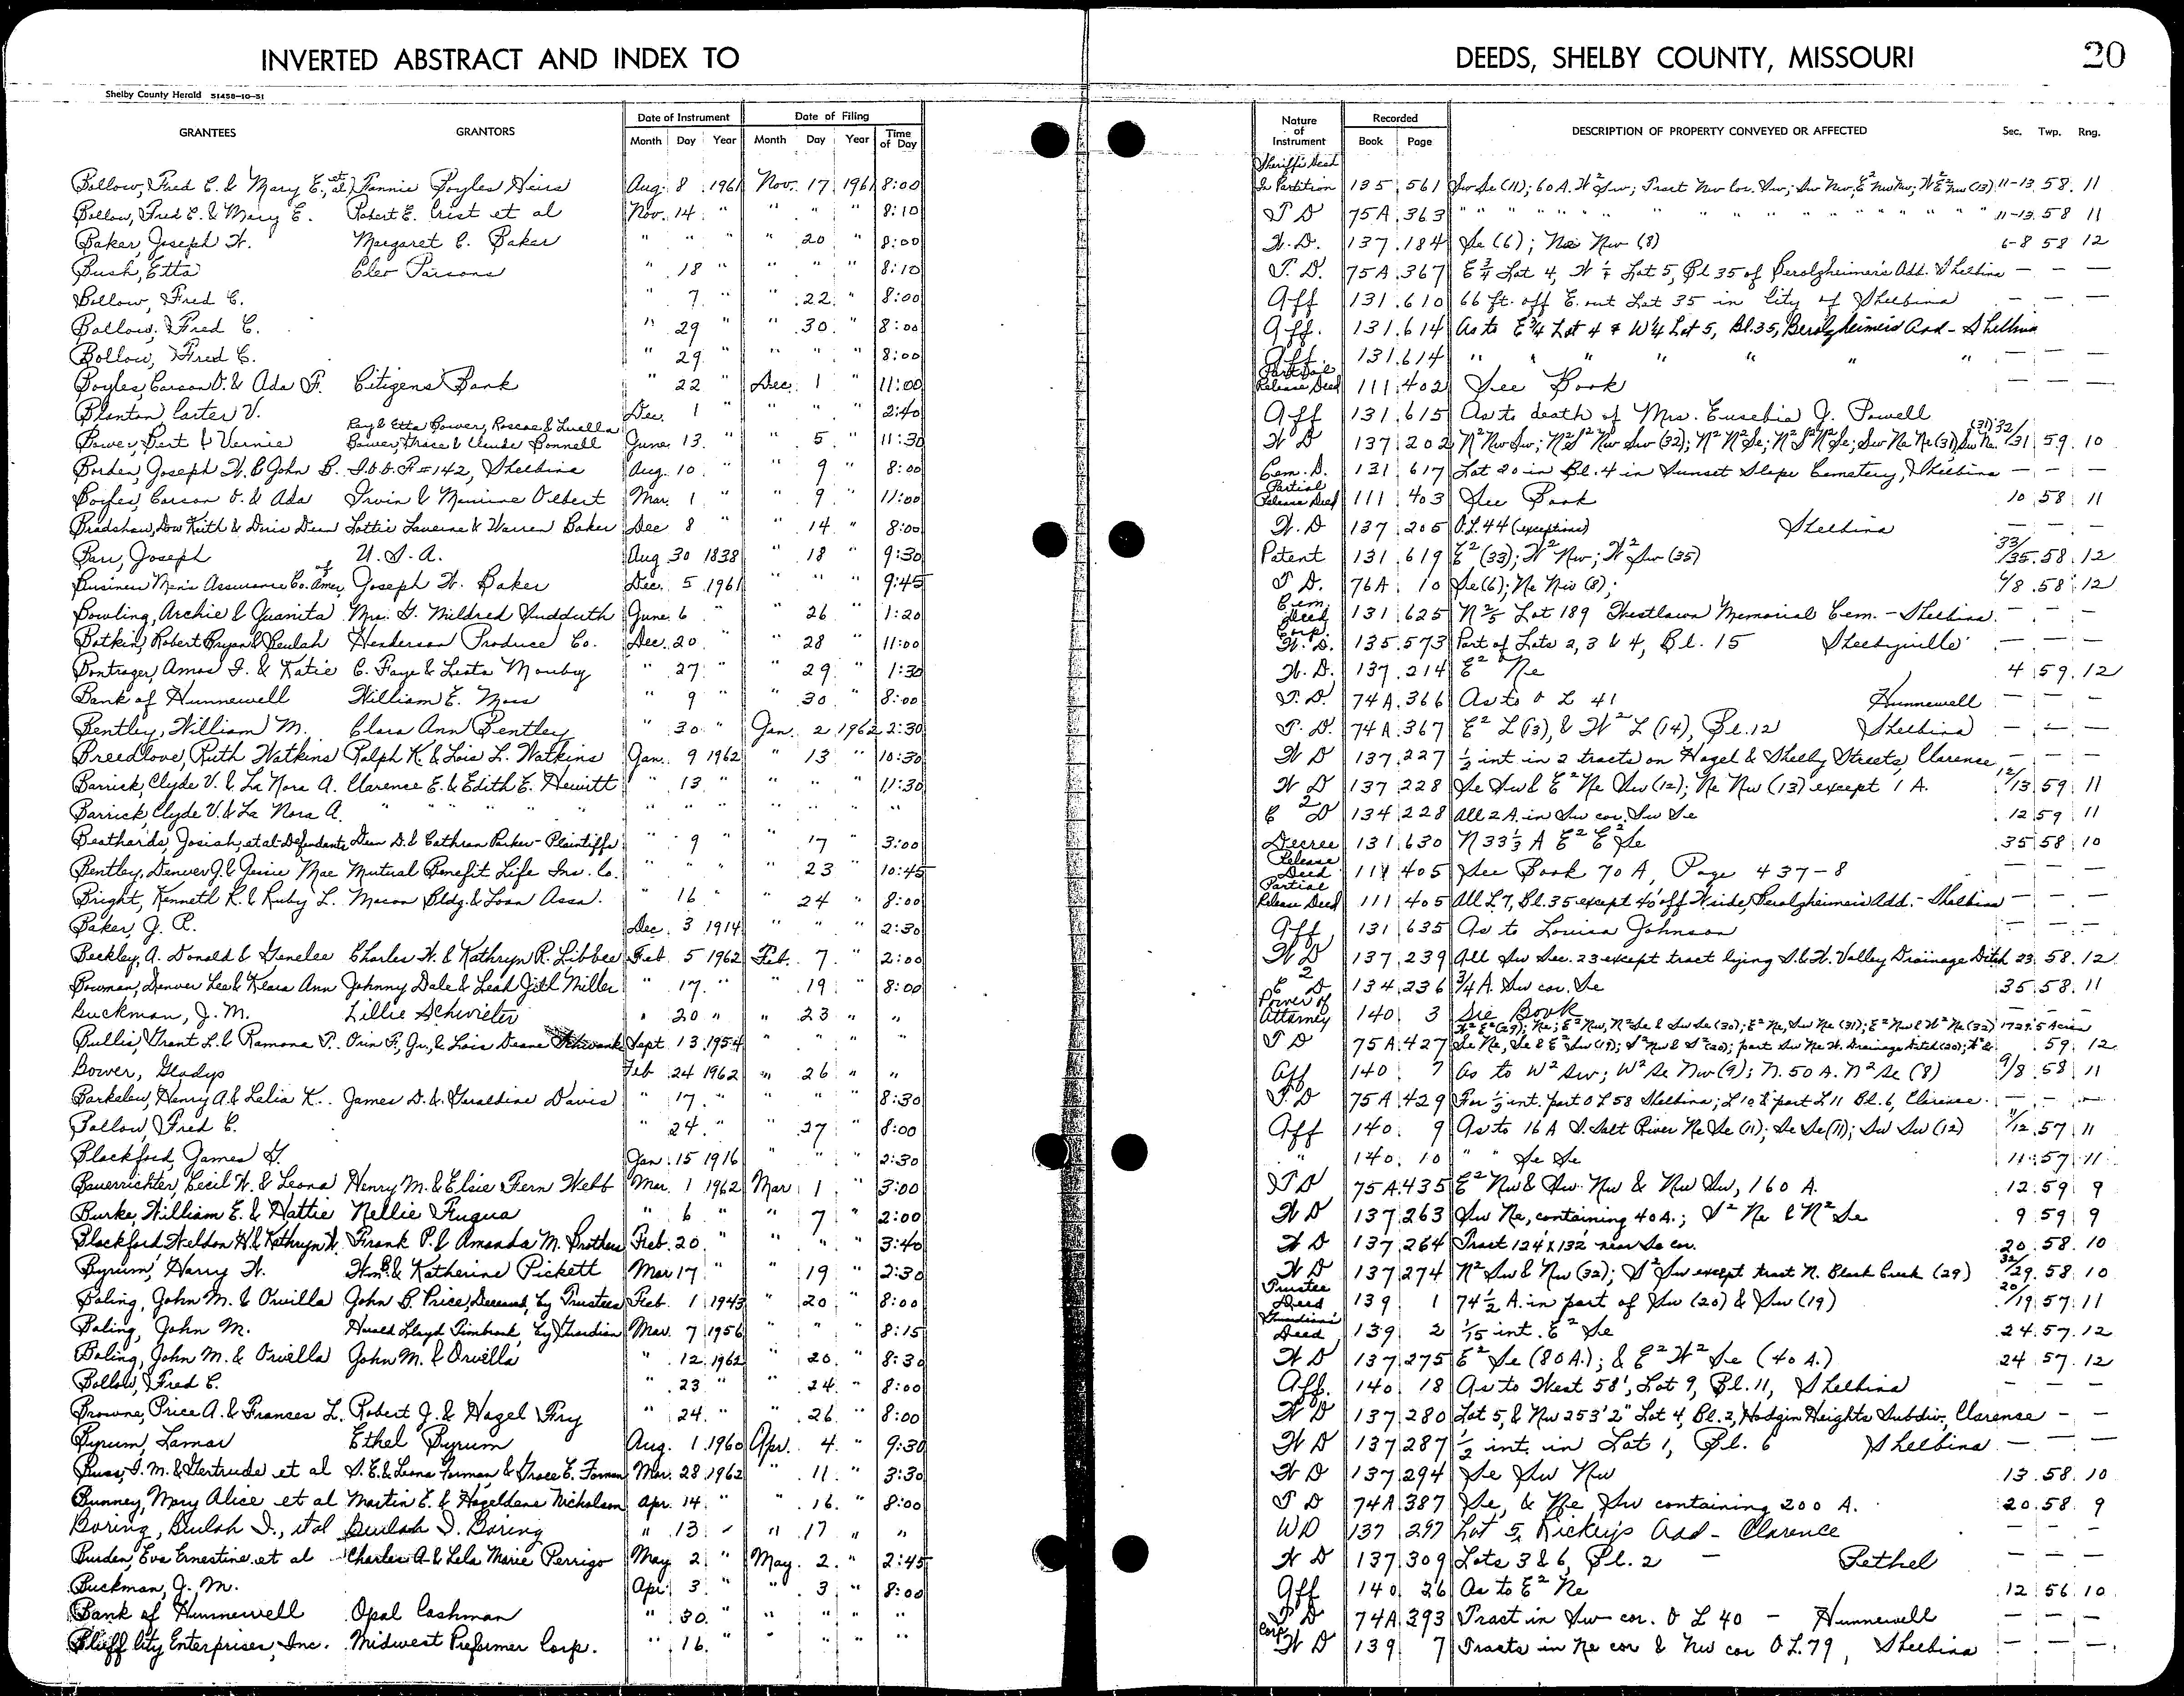 INVERTED ABSTRACT AND INDEX TO DEEDS, SHELBY COUNTY, MISSOURI 20
Shelby County Herald 51458-10-51
GRANTEES GRANTORS Date of Instrument Date of Filing Nature of Instrument Recorded DESCRIPTION OF PROPERTY CONVEYED OR AFFECTED Sec. Twp. Rng.
Month Day Year Month Day Year Time of Day Book Page
Bollow, Fred C. & Mary E., et al Fannie Boyles Heirs Aug. 8 1961 Nov. 17 1961 8:00 Sheriff's Deed In Partition 135 561 Sw Se (11); 60 A. W² Sw; Tract Nw Cor. Sw; Sw Nw; E² Nw Nw; W² E² Nw (13) 11-13 58 11
Bollow, Fred C. & Mary E. Robert E. Crist et al Nov. 14 " " " " 8:10 T D 75A 363 " " " " " " " " " " " " " " 11-13 58 11
Baker, Joseph W. Margaret C. Baker " " " " 20 " 8:00 W. D. 137 184 Se (6); Ne Nw (8) 6-8 58 12
Bush, Etta Cleo Parsons " 18 " " " " 8:10 T. D. 75A 367 E ¾ Lot 4, W ¼ Lot 5, Bl 35 of Berolzheimer's Add. Shelbina — — —
Bollow, Fred C. " 7 " " 22 " 8:00 Aff 131 610 66 ft. off E. out Lot 35 in City of Shelbina — — —
Bollow, Fred C. " 29 " " 30 " 8:00 Aff. 131 614 As to E¾ Lot 4 & W¼ Lot 5, Bl. 35, Berolzheimer's Add - Shelbina
Bollow, Fred C. " 29 " " " " 8:00 Aff. 131 614 " " " " " " " — — —
Boyles, Carson O. & Ada F. Citizens Bank " 22 " Dec. 1 " 11:00 Partial Release Deed 111 402 See Book — — —
Blanton Carter V. Dec. 1 " " " " 2:40 Aff 131 615 As to death of Mrs. Eusebia J. Powell
Bower, Bert & Vernie Ray & Etta Bower, Roscoe & Luella Bower, Grace & Claude Bonnell June 13 " " 5 " 11:30 W D 137 202 N² Nw Sw; N² S² Nw Sw (32); N² N² Se; N² S² N² Se; Sw Ne Ne (31) Sw Ne (31) 32/31 59 10
Borden, Joseph W. & John B. I.O.O.F. #142, Shelbina Aug. 10 " " 9 " 8:00 Cem. D. 131 617 Lot 20 in Bl. 4 in Sunset Slope Cemetery, Shelbina — — —
Boyles, Carson O. & Ada Irvin & Minnie Olbert Mar. 1 " " 9 " 11:00 Partial Release Deed 111 403 See Book 10 58 11
Bradshaw, Dow Keith & Doris Dean Lottie Laverne & Warren Baker Dec 8 " " 14 " 8:00 W. D 137 205 O.L. 44 (exceptions) Shelbina — — —
Barr, Joseph U. S. A. Aug 30 1838 " 18 " 9:30 Patent 131 619 E² (33); W² Nw; W² Sw (35) 33/35 58 12
Business Men's Assurance Co. of Amer. Joseph W. Baker Dec. 5 1961 " " " 9:45 T D. 76A 10 Se (6); Ne Nw (8); 6/8 58 12
Bowling, Archie & Juanita Mrs. G. Mildred Sudduth June 6 " " 26 " 1:20 Cem Deed 131 625 N ⅖ Lot 189 Westlawn Memorial Cem. - Shelbina — — —
Botkin, Robert Bryan & Beulah Henderson Produce Co. Dec. 20 " " 28 " 11:00 Corp. W. D. 135 573 Part of Lots 2, 3 & 4, Bl. 15 Shelbyville — — —
Bontrager, Amos I. & Katie C. Faye & Lesta Mowby " 27 " " 29 " 1:30 W. D. 137 214 E² Ne 4 59 12
Bank of Hunnewell William E. Moss " 9 " " 30 " 8:00 T. D. 74A 366 As to O L 41 Hunnewell — — —
Bentley, William M. Clara Ann Bentley " 30 " Jan. 2 1962 2:30 T. D. 74A 367 E² L (13), & W² L (14), Bl. 12 Shelbina — — —
Breedlove, Ruth Watkins Ralph K. & Lois L. Watkins Jan. 9 1962 " 13 " 10:30 W D 137 227 ½ int. in 2 tracts on Hazel & Shelby Streets, Clarence — — —
Barrick, Clyde V. & La Nora A. Clarence E. & Edith E. Hewitt " 13 " " " " 11:30 W D 137 228 Se Sw & E² Ne Sw (12); Ne Nw (13) except 1 A. 12/13 59 11
Barrick, Clyde V. & La Nora A. " " " " " " " " " " " Q C D 134 228 All 2 A. in Sw cor. Sw Se 12 59 11
Beathards, Josiah, et al - Defendants Dean D. & Cathran Parker - Plaintiffs " 9 " " 17 " 3:00 Decree 131 630 N 33⅓ A E² E² Se 35 58 10
Bentley, Denver J. & Jessie Mae Mutual Benefit Life Ins. Co. " " " " 23 " 10:45 Release Deed 111 405 See Book 70 A, Page 437-8 — — —
Bright, Kenneth R. & Ruby L. Macon Bldg. & Loan Assn. " 16 " " 24 " 8:00 Partial Release Deed 111 405 All L 7, Bl. 35 except 40' off W side, Berolzheimer's Add. - Shelbina — — —
Baker, J. R. Dec. 3 1914 " " " 2:30 Aff 131 635 As to Louisa Johnson — — —
Beckley, A. Donald & Genelee Charles W. & Kathryn R. Libbee Feb. 5 1962 Feb. 7 " 2:00 W D 137 239 All Sw Sec. 23 except tract lying S. & W. Valley Drainage Ditch 23 58 12
Bowman, Denver Lee & Klara Ann Johnny Dale & Leah Jill Miller " 17 " " 19 " 8:00 Q C D 134 236 ¾ A. Sw cor. Se 35 58 11
Buckman, J. M. Lillie Schwieter " 20 " " 23 " " Power of Attorney 140 3 See Book — —
Bullis, Grant L. & Ramona P. Orin F., Jr., & Lois Deane Sept 13 1954 " " " " T D 75A 427 W² E² (29); Ne; E² Nw, N² Se & Sw Se (30); E² Ne, Sw Ne (31); E² Nw & W² Ne (32) 1729.5 Acres Se Ne, Se & E² Sw (19); S² Nw & S² (20); part Sw Ne W. Drainage Ditch (20); 59 12
Bower, Gladys Feb 24 1962 " 26 " " Aff 140 7 As to W² Sw; W² Se Nw (9); N. 50 A. N² Se (8) 9/8 58 11
Barkelew, Henry A. & Lelia K. James D. & Geraldine Davis " 17 " " " " 8:30 T D 75A 429 For ½ int. part O L 58 Shelbina; L 10 & part L 11 Bl. 6, Clarence — — —
Bollow, Fred C. " 24 " " 27 " 8:00 Aff 140 9 As to 16 A S. Salt River Ne Se (11); Se Se (11); Sw Sw (12) 11/12 57 11
Blackford, James G. Jan 15 1916 " " " 2:30 " 140 10 " " Se Se 11 57 11
Bauerrichter, Cecil W. & Leona Henry M. & Elsie Fern Webb Mar. 1 1962 Mar 1 " 3:00 T D 75A 435 E² Nw & Sw Nw & Nw Sw, 160 A. 12 59 9
Burke, William E. & Hattie Nellie Fuqua " 6 " " 7 " 2:00 W D 137 263 Sw Ne, containing 40 A.; S² Ne & N² Se 9 59 9
Blackford, Weldon H. & Kathryn W. Frank P. & Amanda M. Brothers Feb. 20 " " " " 3:40 W D 137 264 Tract 124' x 132' near Se cor. 20 58 10
Byrum, Harry W. Wm. B. & Katherine Pickett Mar 17 " " 19 " 2:30 W D 137 274 N² Sw & Nw (32); S² Sw except tract N. Black Creek (29) 32/29 58 10
Boling, John M. & Orvilla John B. Price, Deceased, by Trustees Feb. 1 1943 " 20 " 8:00 Trustee Deed 139 1 74½ A. in part of Sw (20) & Sw (19) 20/19 57 11
Boling, John M. Harold Lloyd Timbrook, by Guardian Mar. 7 1956 " " " 8:15 Guardian's Deed 139 2 1/15 int. E² Se 24 57 12
Boling, John M. & Orvilla John M. & Orvilla " 12 1962 " 20 " 8:30 W D 137 275 E² Se (80 A.); & E² W² Se (40 A.) 24 57 12
Bollow, Fred C. " 23 " " 24 " 8:00 Aff. 140 18 As to West 58', Lot 9, Bl. 11, Shelbina — — —
Browne, Price A. & Frances L. Robert J. & Hazel Fry " 24 " " 26 " 8:00 W D 137 280 Lot 5, & Nw 253' 2" Lot 4, Bl. 2, Hodgin Heights Subdiv., Clarence — —
Byrum, Lamar Ethel Byrum Aug. 1 1960 Apr. 4 " 9:30 W D 137 287 ½ int. in Lot 1, Bl. 6 Shelbina — — —
Buss, I. M. & Gertrude et al S. E. & Leona Forman & Grace E. Forman Mar. 28 1962 " 11 " 3:30 W D 137 294 Se Sw Nw 13 58 10
Bunney, Mary Alice et al Martin E. & Hazeldene Nicholson Apr. 14 " " 16 " 8:00 T D 74A 387 Se, & Ne Sw containing 200 A. 20 58 9
Boring, Beulah I., et al Beulah I. Boring " 13 " " 17 " " WD 137 297 Lot 5, Rickey's Add - Clarence — — —
Burden, Eva Ernestine et al Charles A & Lela Marie Perrigo May 2 " May 2 " 2:45 W D 137 309 Lots 3 & 6, Bl. 2 — Bethel — — —
Buckman, J. M. Apr. 3 " " 3 " 8:00 Aff 140 26 As to E² Ne 12 56 10
Bank of Hunnewell Opal Cashman " 30 " " " " " T D 74A 393 Tract in Sw cor. O L 40 — Hunnewell — — —
Bluff City Enterprises, Inc. Midwest Preformer Corp. " 16 " " " " " Corp W D 139 7 Tracts in Ne cor & Nw cor O L. 79, Shelbina — — —